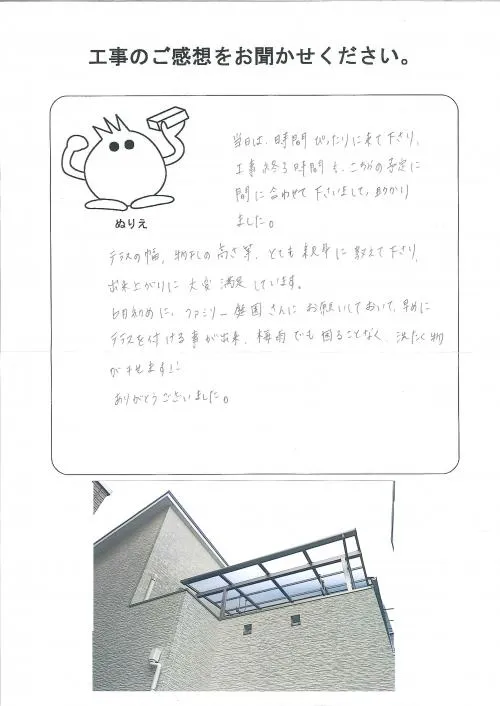 工事のご感想をお聞かせください。
ぬりえ
当日は、時間ぴったりに来て下さり、
工事終了時間も、こちらの予定に
間に合わせて下さいまして、助かり
ました。
テラスの幅、物干しの高さ等、とても親身に教えて下さり、
出来上がりに大変満足しています。
6月初めに、ファミリー庭園さんにお願いしておいて、早めに
テラスを付ける事が出来、梅雨でも困ることなく、洗たく物
が干せます!!
ありがとうございました。